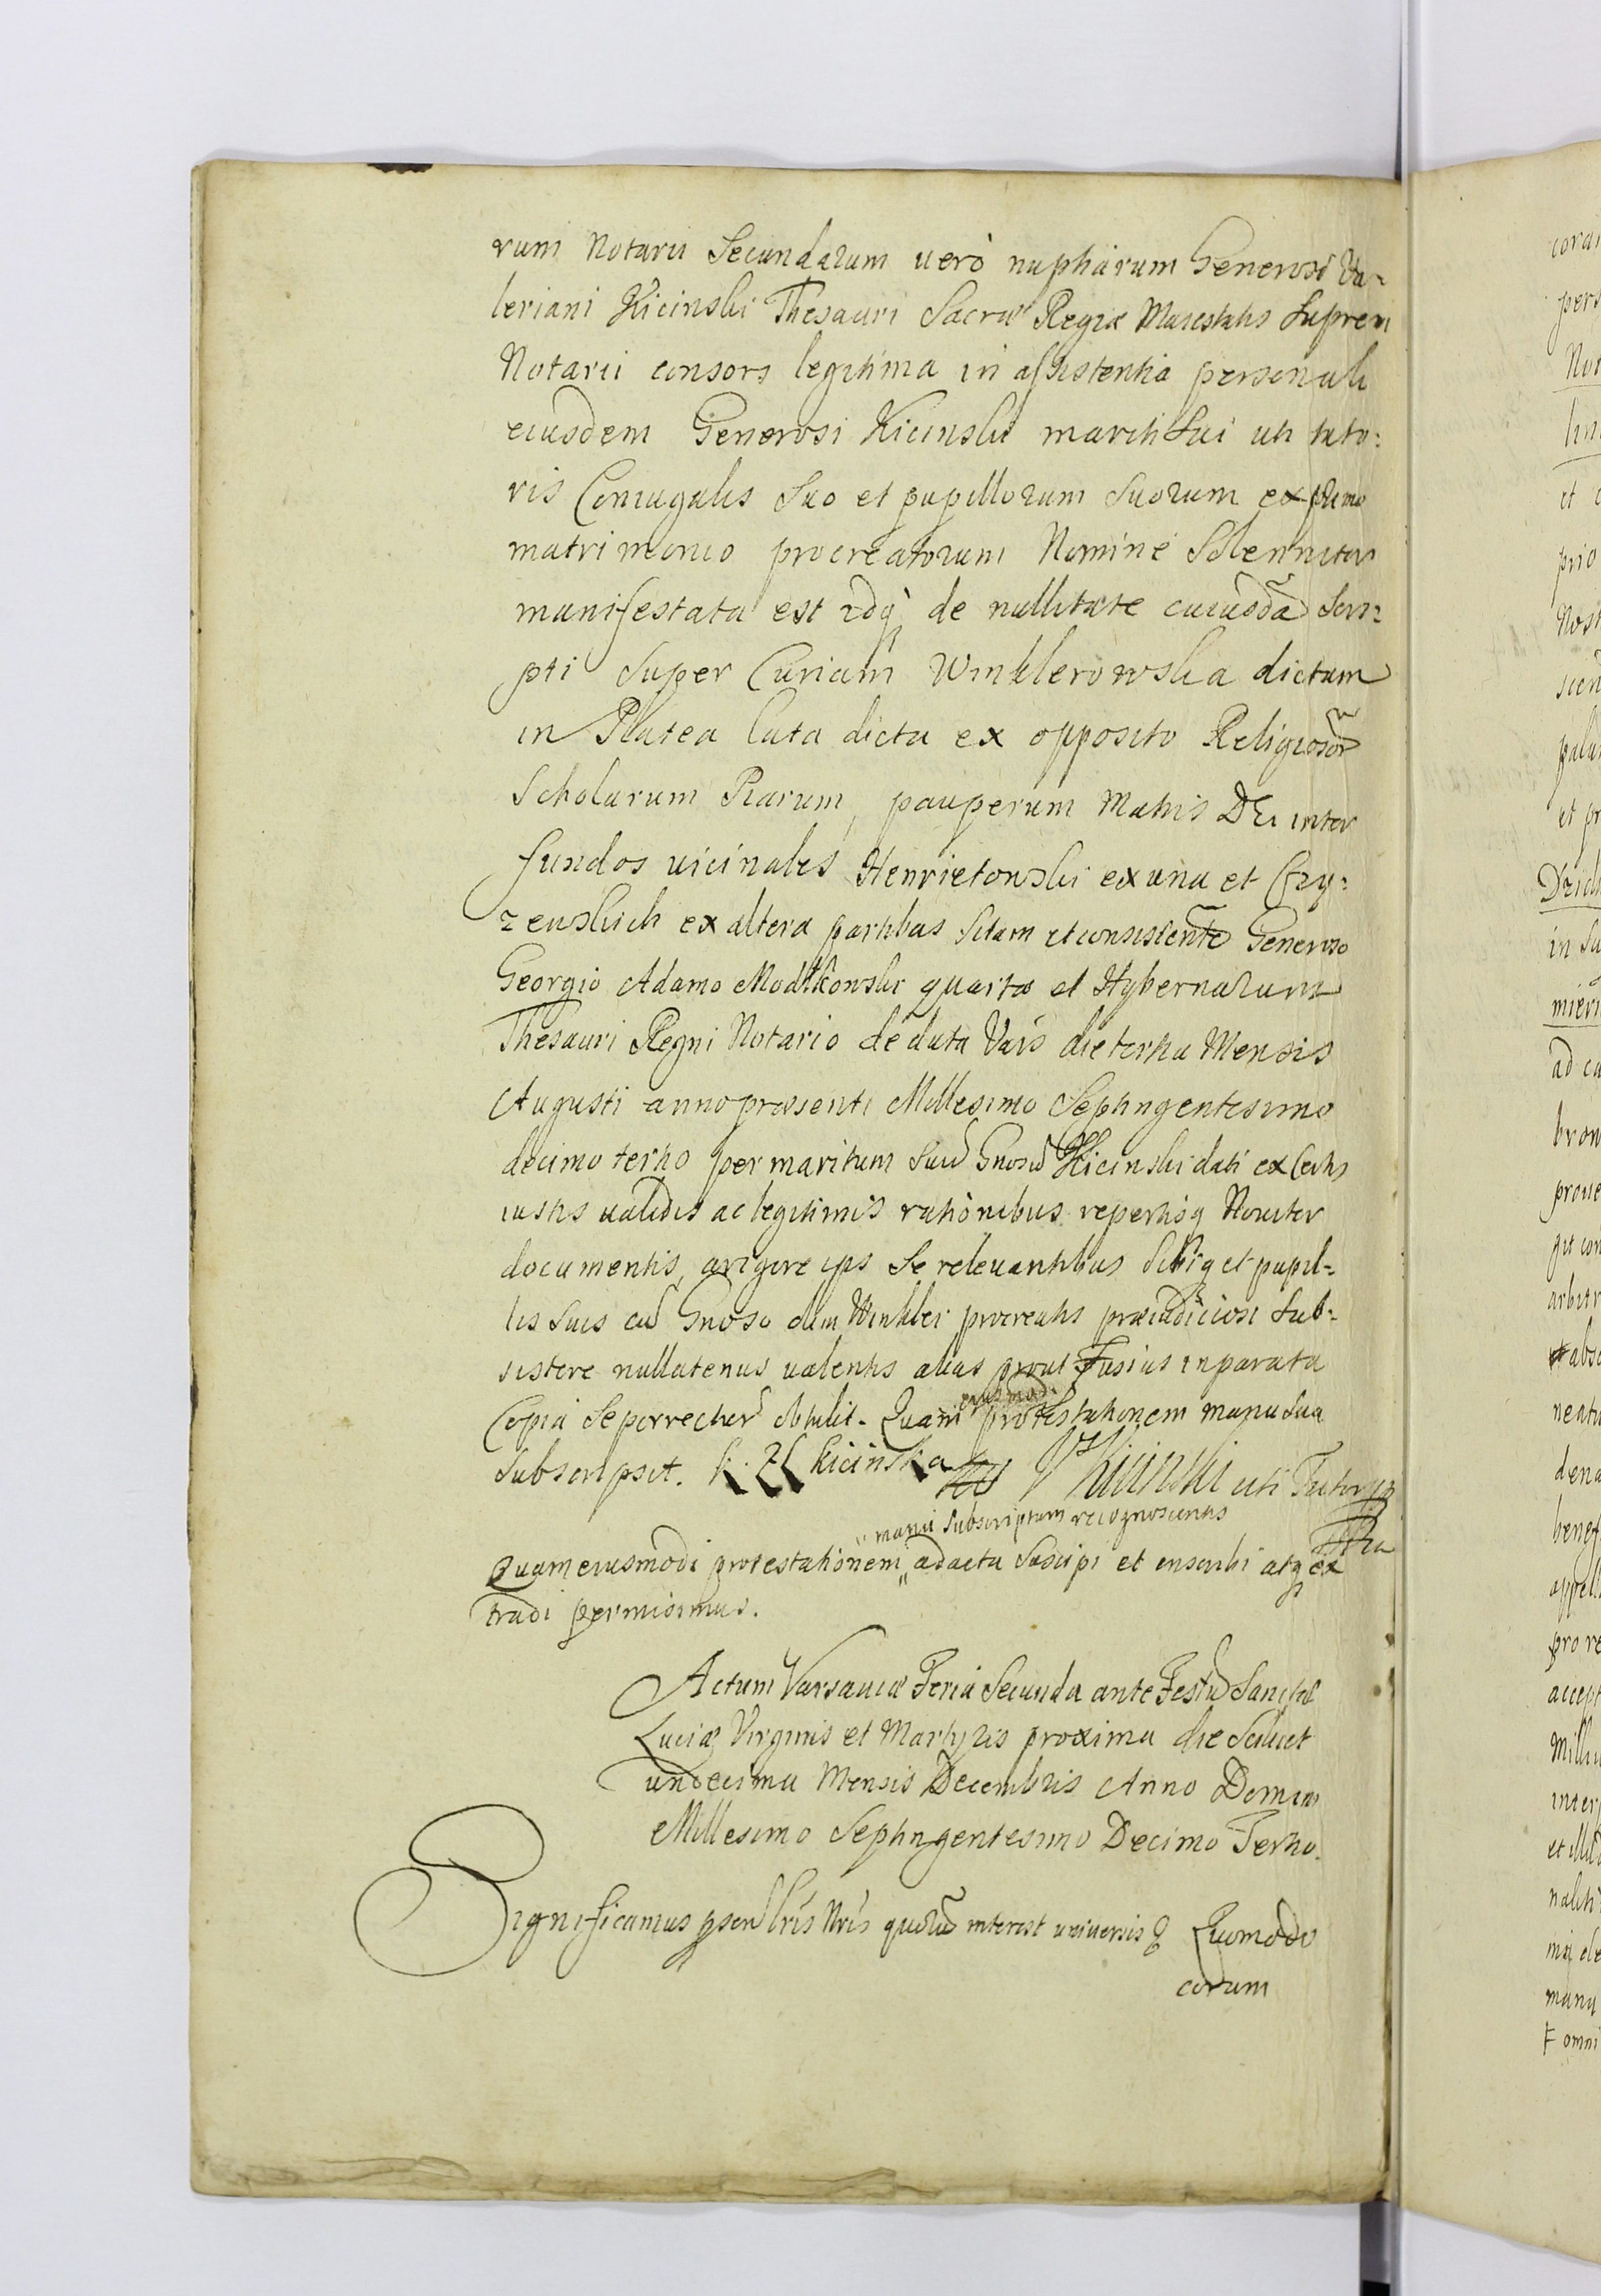 rum Notarii Secundarum verò nuptiarum Generosi Va-
leriani Kicinski Thesauri Sacræ Regiæ Maiestatis Supremi
Notarii consors legitima in assistentia personali
eiusdem Generosi Kicinski mariti Sui uti tuto-
ris Coniugalis Suo et pupillorum Suorum ex primo
matrimonio procreatorum Nomine Solenniter
manifestata est idq de nullitate cuiusdã Scri-
pti Super Curiam Winklerowska dictam
in Platea lata dicta ex opposito Religiosor̃
Scholarum Piarum, pauperum Matris DEi inter
fundos vicinales Henrietowski ex una et Czy-
zewskich ex altera partibus Sitam et consistentẽ Generoso
Georgio Adamo Modlkowski quartæ et Hybernarum
Thesauri Regni Notario de data Vars die tertia Mensis
Augusti anno præsenti Millesimo Septingentesimo
decimo tertio per maritum Suũ Gnosũ Kicinski dati ex Certis
iustis validis ac legitimis rationibus repertisq Noviter
documentis, a rigore ips Se relevantibus Sibiq et pupil-
lis Suis cũ Gnoso olim Winkler procreatis præiudiciosi Sub-
sistere nullatenus valentis alias prout Fusius in parata
Copia Se porrecturũ obtulit. Quam eiusmodi protestationem manu Sua
Subscripsit. K. Z Kicinska VKicinski uti Tutor
manu Subscriptam recognoscentis
Quam eiusmodi protestationem ad acta Suscipi et inscribi atq ex
tradi permisimus.
Actum Varsaviæ Feria Secunda ante Festũ Sanctæ
Luciæ Virginis et Martyris proxima die Scilicet
undecima Mensis Decembris Anno Domini
Millesimo Septingentesimo Decimo Tertio.
Significamus pñtibus lris Nris quorũ interest universis q Quomodo
coram